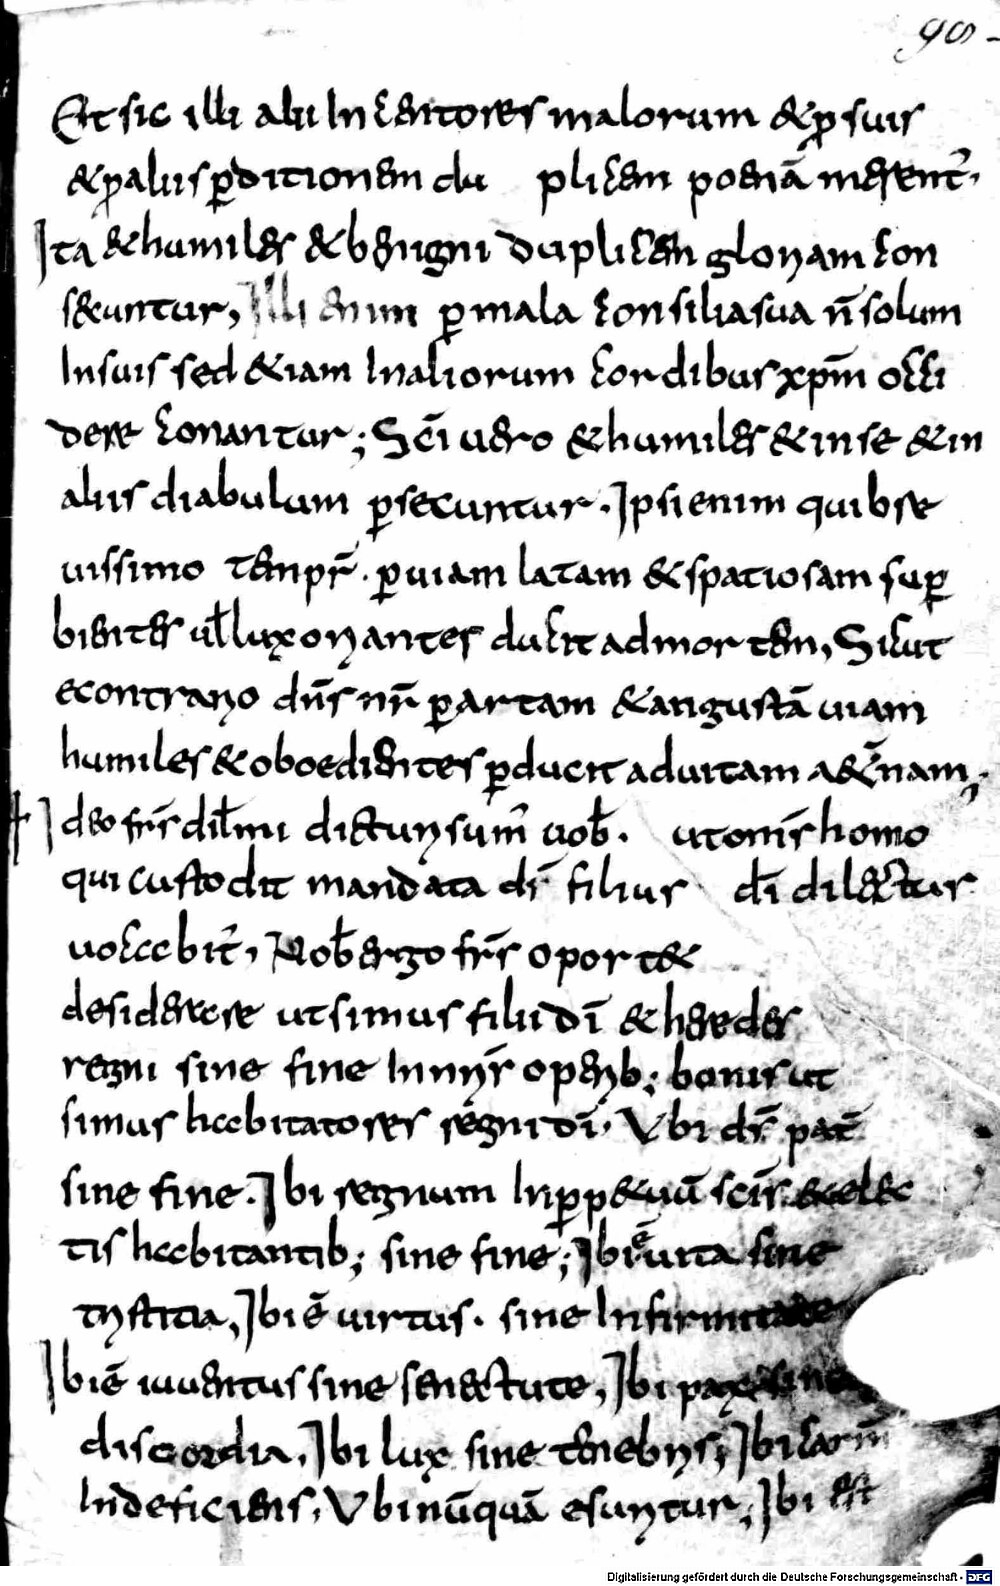 98
Et sic illi alii Incentores malorum & ꝓ suis
& ꝓ aliis ꝑditionem du plicem poenā merent̄,
Ita & humiles & benigni duplicem gloriam con
secuntur, Illi enim ꝑ mala consilia sua n̄ solum
In suis sed & iam In aliorum cordibus xp̄m occi
dere conantur; Sc̄i uero & humiles & in se & in
aliis diabulum ꝑsecuntur. Ipsi enim quib se
uissimo tenpr̄. ꝑ uiam latam & spatiosam suꝑ
bientes ul̄ luxoriantes ducit ad mortem, Sicut
econtrario dn̄s nr̄ ꝑ artam & angustā uiam
humiles & oboedientes ꝑducit ad uitam a&̄nam,
Ideo frs̄ dil̄mi dicturi sum̄ uob̄. ut omīs homo
qui custodit mandata dī filius dī dilectus
uocabit̄, Nob̄ ergo frs̄ oport&
desiderare ut simus filii dī & heredes
regni sine fine In nr̄īs operib; bonis ut
simus habitatores regni dī. Ubi ds̄ pat̄
sine fine. Ibi regnum Inꝑp&uū sc̄īs & elec
tis habitantib; sine fine; Ibi ē uita sine
tristitia, Ibi ē virtus. sine Infirmitate
Ibi ē iuuentus sine senectute, Ibi pax sine
discordia, Ibi lux sine tenebris; Ibi
Indeficiens, Ubi nūquā esuritur, Ibi est
Digitalisierung gefördert durch die Deutsche Forschungsgemeinschaft - DFG